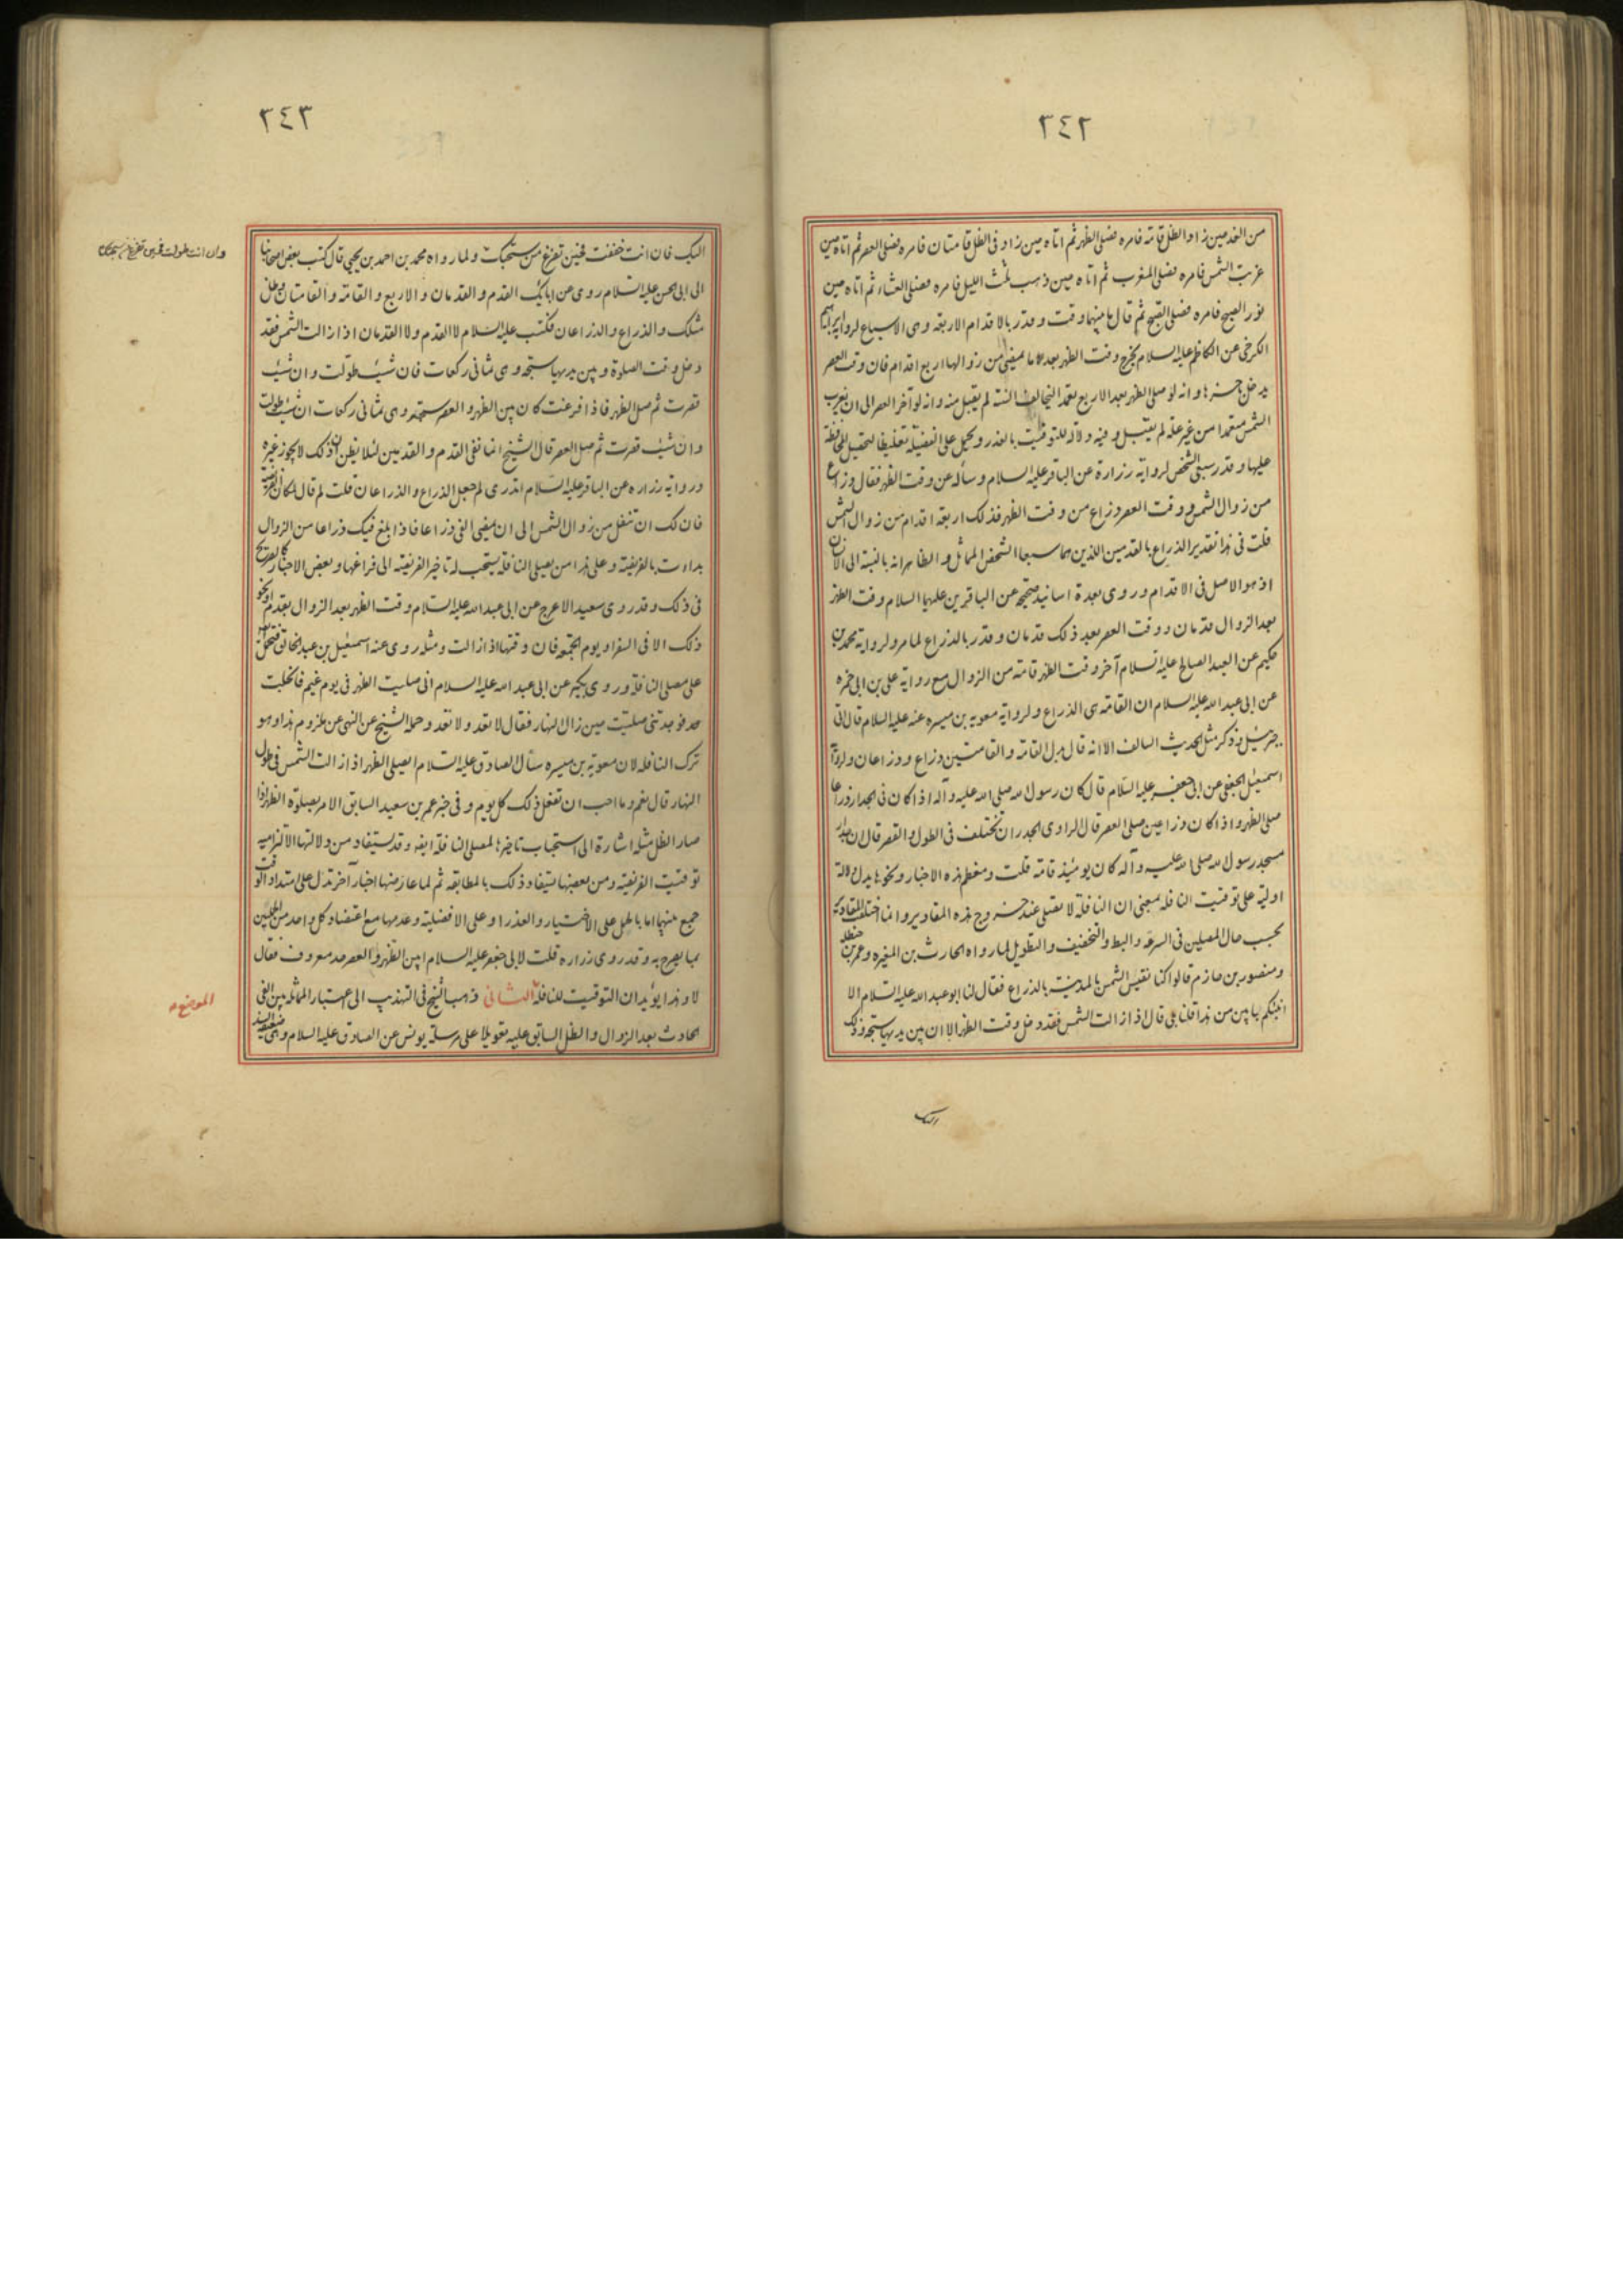 ٣٤٢
من الغد حين زاد الظل قامة فامره فصلى الظهر ثم اتاه حين زاد فى الظل قامتان فامره فصلى العصر ثم اتاه حين
غربت الشمس فامره فصلى المغرب ثم اتاه حين ذهب ثلث الليل فامره فصلى العشاء ثم اتاه حين
نور الصبح فامره فصلى الصبح ثم قال ما بينهما وقت وقدر بالاقدام الاربعة وهى الاسباع لرواية ابرهيم
الكرخى عن الكاظم عليه السلام يخرج وقت الظهر بعد ما يمضى من زوالها اربع اقدام فان وقت العصر
يدخل حينئذ وانه لو صلى الظهر بعد الاربع تعمد التخالف السنة لم يقبل منه وانه لو اخر العصر الى ان يغرب
الشمس متعمدا من غير علة لم يقبل وفيه دلالة للتوقيت بالعذر ويحمل على الفضيلة تغليظا لتحصيل المحافظة
عليها وقدر سبعى الشخص لرواية زرارة عن الباقر عليه السلام وسأله عن وقت الظهر فقال ذراع
من زوال الشمس ووقت العصر ذراع من وقت الظهر فذلك اربعة اقدام من زوال الشمس
قلت فى هذا تقدير الذراع بالقدمين اللذين هما سبعا الشخص المماثل والظاهر انه بالنسبة الى الانسان
اذ هو الاصل فى الاقدام وروى بعدة اسانيد صحيحة عن الباقرين عليهما السلام وقت الظهر
بعد الزوال قدمان ووقت العصر بعد ذلك قدمان وقدر بالذراع لما مر ولرواية محمد بن
حكيم عن العبد الصالح عليه السلام آخر وقت الظهر قامة من الزوال مع رواية على بن ابى حمزه
عن ابى عبد الله عليه السلام ان القامة هى الذراع ولرواية معوية بن ميسره عنه عليه السلام قال اتى
جبرئيل وذكر مثل الحديث السالف الا انه قال بدل القامة والقامتين ذراع وذراعان ولرواية
اسمعيل الجعفى عن ابى جعفر عليه السلام قال كان رسول الله صلى الله عليه وآله اذا كان فى الجدار ذراعا
صلى الظهر واذا كان ذراعين صلى العصر قال الراوى الجدران تختلف فى الطول والقصر قال ان جدار
مسجد رسول الله صلى الله عليه وآله كان يومئذ قامة قلت ومعظم هذه الاخبار ونحوها يدل دلالة
اولية على توقيت النافلة بمعنى ان النافلة لا تصلى عند خروج هذه المقادير وانما اختلف المقادير
بحسب حال المصلين فى السرعة والبطء والتخفيف والتطويل لما رواه الحارث بن المغيره وعمر بن حنظلة
ومنصور بن حازم قالوا كنا نقيس الشمس بالمدينة بالذراع فقال لنا ابو عبد الله عليه السلام الا
انبئكم بابين من هذا قلنا بلى قال اذا زالت الشمس فقد دخل وقت الظهر الا ان بين يديها سبحة وذلك
اليك
٣٤٣
اليك فان انت خففت فحين تفرغ من سبحتك ولما رواه محمد بن احمد بن يحيى قال كتب بعض اصحابنا
وان انت طولت فحين تفرغ من سبحتك
الى ابى الحسن عليه السلام روى عن ابائك القدم والقدمان والاربع والقامة والقامتان وظل
مثلك والذراع والذراعان فكتب عليه السلام لا القدم ولا القدمان اذا زالت الشمس فقد
دخل وقت الصلوة وبين يديها سبحة وهى ثمانى ركعات فان شئت طولت وان شئت
قصرت ثم صل الظهر فاذا فرغت كان بين الظهر والعصر سبحة وهى ثمانى ركعات ان شئت طولت
وان شئت قصرت ثم صل العصر قال الشيخ انما نفى القدم والقدمين لئلا يظن ان ذلك لا يجوز غيره
ورواية زراره عن الباقر عليه السلام اتدرى لم جعل الذراع والذراعان قلت لم قال لمكان الفريضة
فان لك ان تتنفل من زوال الشمس الى ان يمضى الفئ ذراعا فاذا بلغ فيئك ذراعا من الزوال
بدات بالفريضة وعلى هذا من يصلى النافلة يستحب له تاخير الفريضة الى فراغها وبعض الاخبار كالصريح
فى ذلك وقد روى سعيد الاعرج عن ابى عبد الله عليه السلام وقت الظهر بعد الزوال بقدم او نحو
ذلك الا فى السفر او يوم الجمعة فان وقتها اذا زالت ومثله روى عنه اسمعيل بن عبد الخالق فتحمل
على مصلى النافلة وروى بكير عن ابى عبد الله عليه السلام انى صليت الظهر فى يوم غيم فانجلت
فوجدتنى صليت حين زال النهار فقال لا تعد ولا تعد وحمله الشيخ عن النهى عن ملزوم هذا وهو
ترك النافلة لان معوية بن ميسره سأل الصادق عليه السلام ايصلى الظهر اذا زالت الشمس فى طول
النهار قال نعم وما احب ان تفعل ذلك كل يوم وفى خبر عمر بن سعيد السابق الامر بصلوة الظهر اذا
صار الظل مثله اشارة الى استحباب تاخيرها لمصلى النافلة ايضا وقد يستفاد من دلالتها الالتزامية
توقيت الفريضة ومن بعضها يستفاد ذلك بالمطابقة ثم لما عارضها اخبار آخر تدل على امتداد الوقت
جمع بينهما اما بالحمل على الاختيار والعذر او على الافضلية وعدمها مع اعتضاد كل واحد من الحملين
بما يصرح به وقد روى زراره قلت لابى جعفر عليه السلام ابين الظهر والعصر حد معروف فقال
لا وهذا يؤيد ان التوقيت للنافلة الثانى ذهب الشيخ فى التهذيب الى اعتبار المماثلة بين الفئ
الموضع
الحادث بعد الزوال والظل السابق عليه تعويلا على مرسلة يونس عن الصادق عليه السلام وهى ضعيفة السند